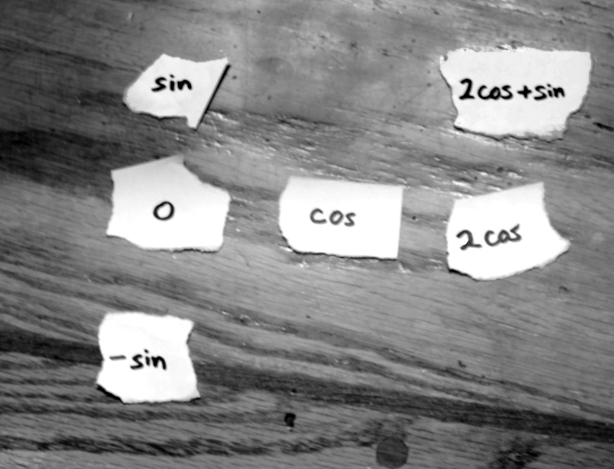 sin
2cos+sin
0
cos
2cos
-sin